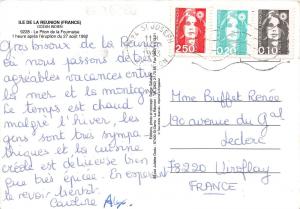 ILE DE LA REUNION (FRANCE)
OCEAN INDIEN
9228 - Le Piton de la Fournaise
1 heure après l'éruption du 27 août 1992
Gros bisoux de la Réunion
où nous passons de très
agréables vacances entre
la mer et la montagne
Le temps est chaud
malgré l'hiver, les
gens sont très sympa
thiques et la cuisine
créole est délicieuse bien
que très épicée. En espérant
le revoir bientôt
Caroline Alex.
2,50
0,20
0,10
Mme Buffet Renée
190 avenue du Gal
Leclerc
78220 Viroflay
FRANCE